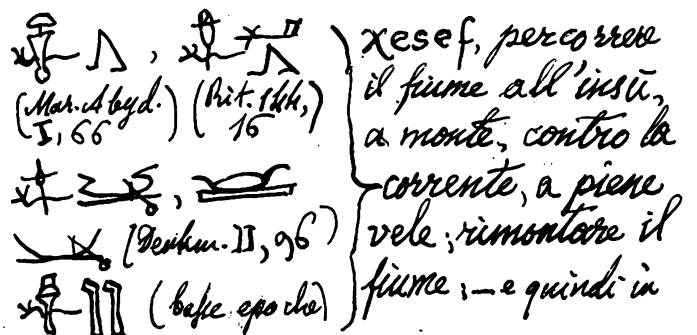 (Mar. Abyd. I, 66) (Rit. 144, 16)
(Denkm. II, 96)
(basse epoche)
χesef, percorrere
il fiume all'insù,
a monte, contro la
corrente, a piene
vele; rimontare il
fiume; — e quindi in